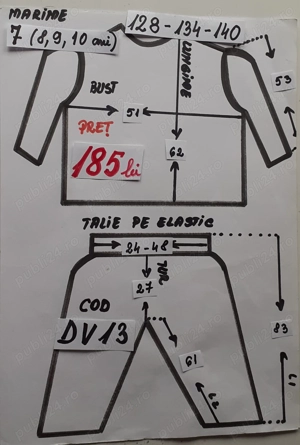 MARIME
7 (8, 9, 10 ani)
128-134-140
LUNGIME
53
BUST
51
PREȚ
185 lei
62
TALIE PE ELASTIC
24-48
TUR
27
COD
DV13
83
61
L1
L2